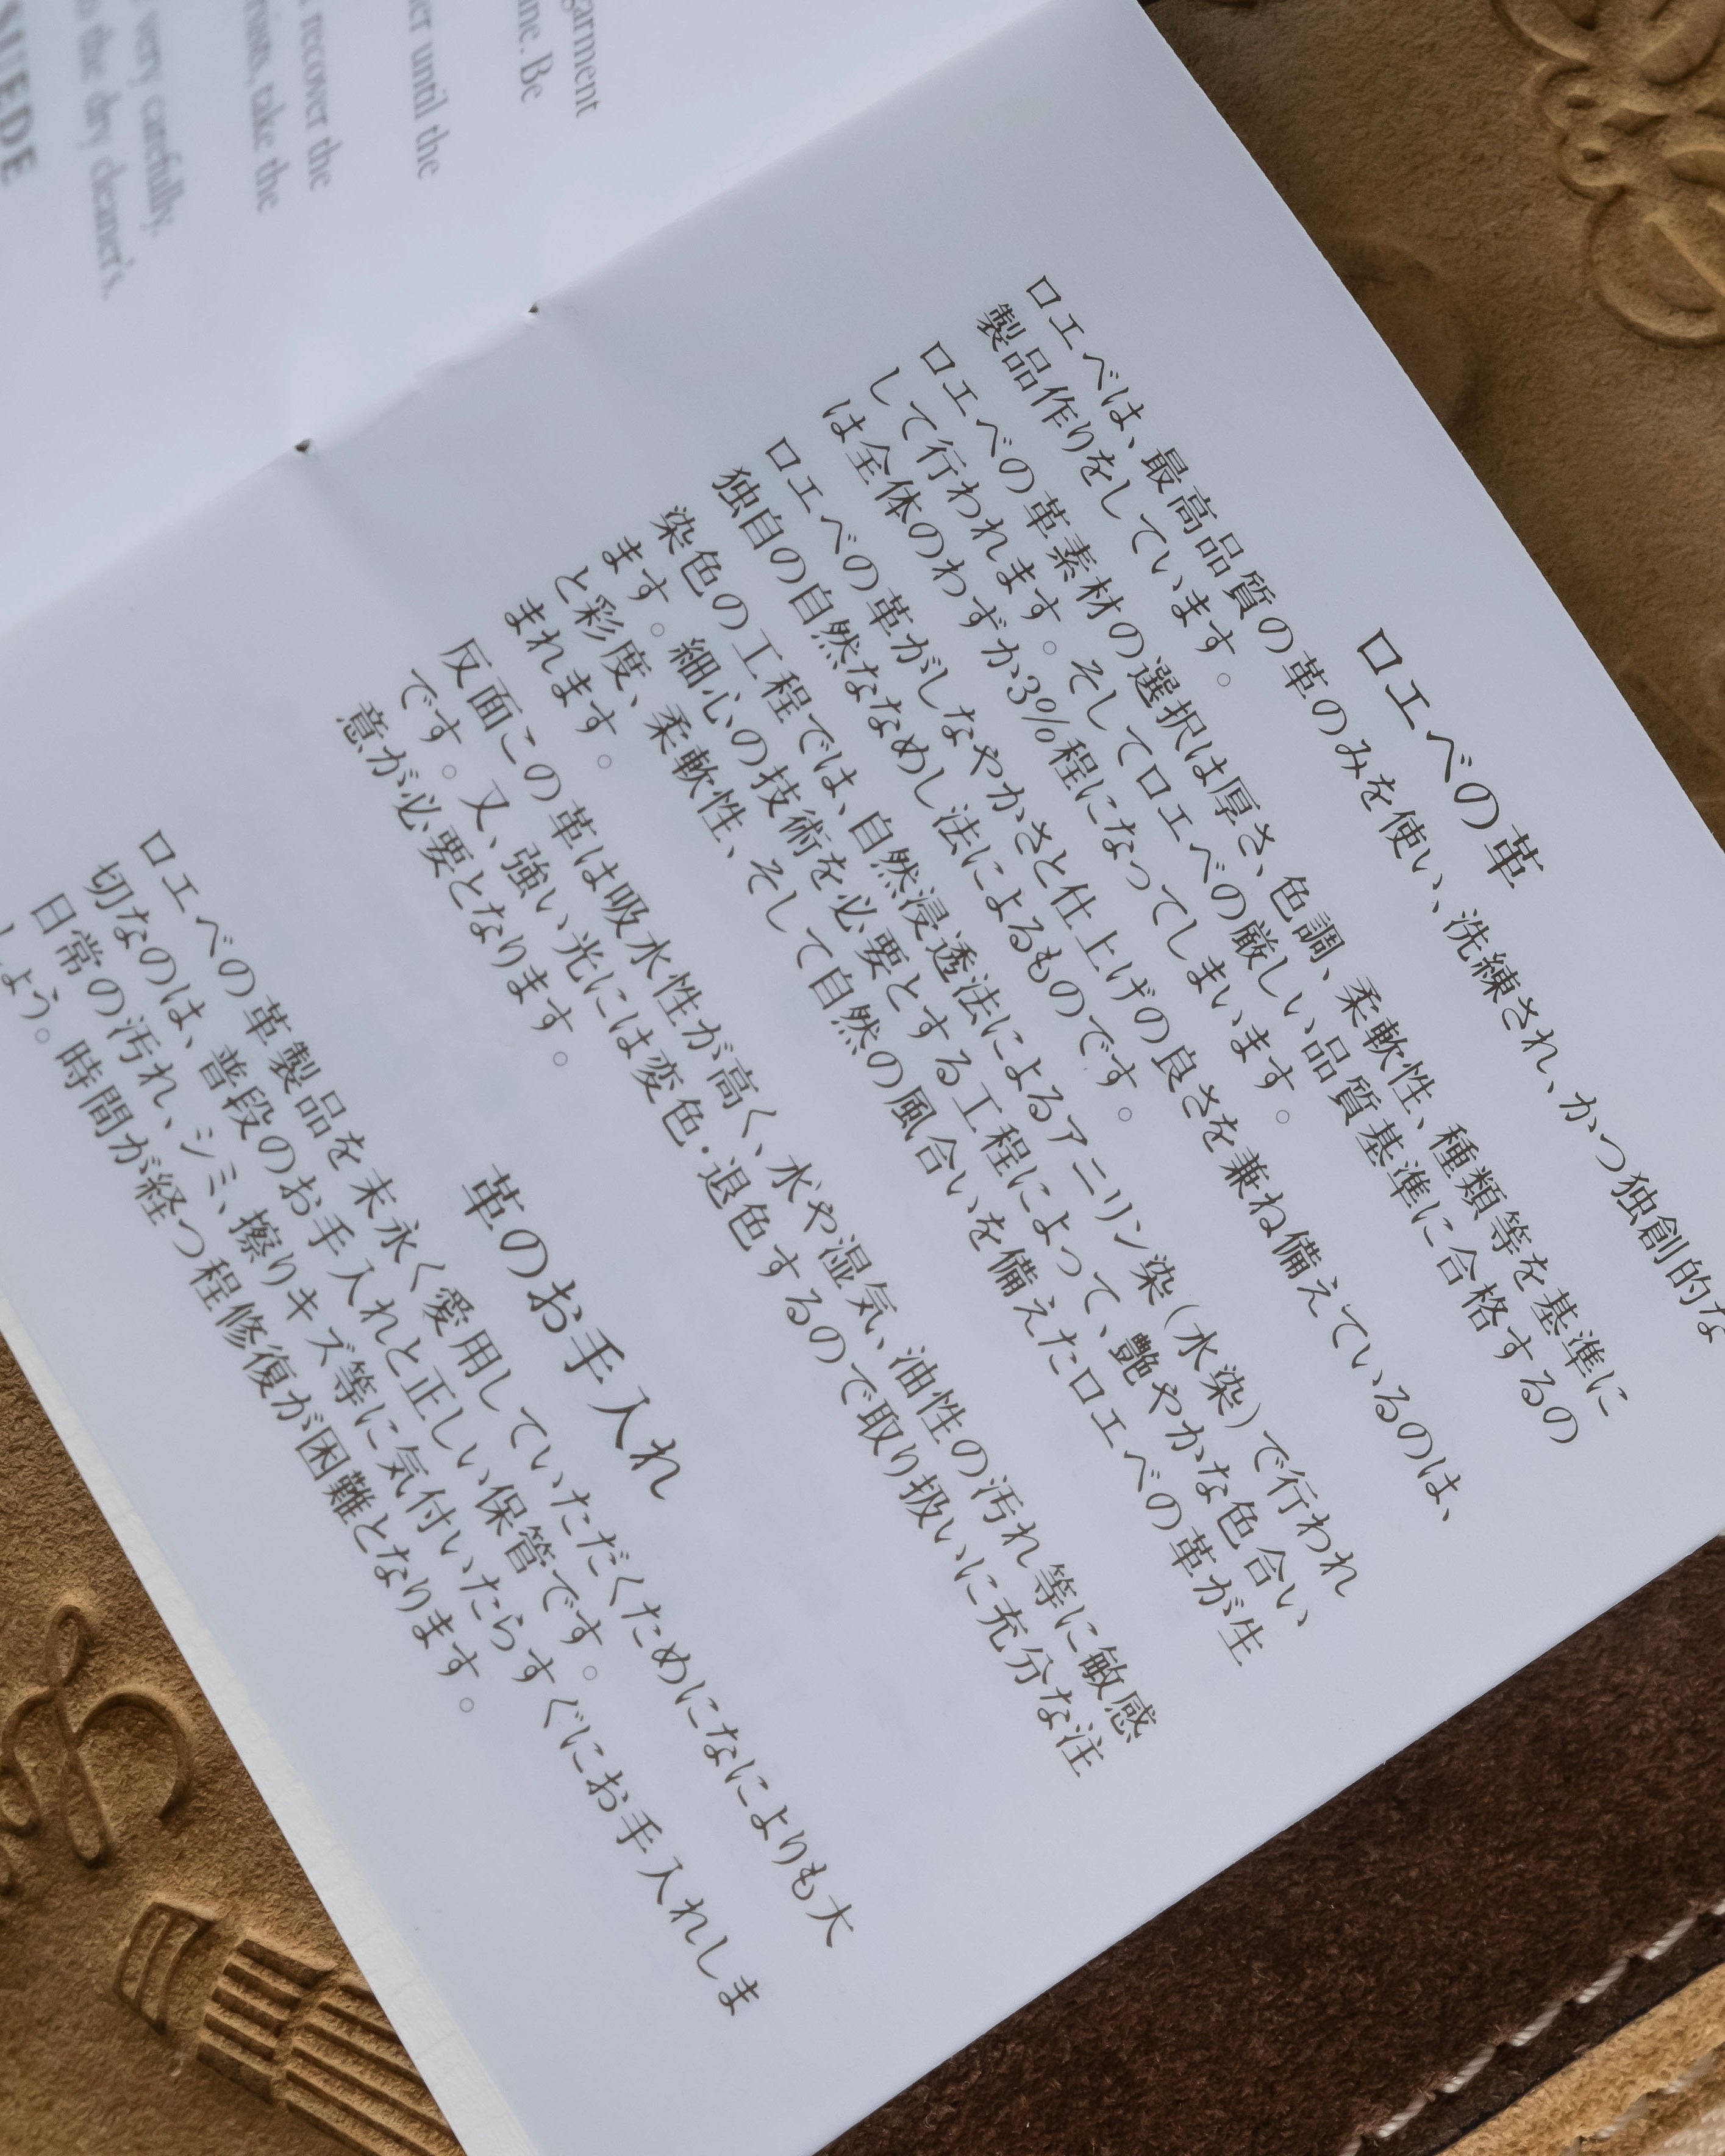 garment
ine. Be
er until the
recover the
take the
very carefully.
the dry cleaner's.
SUEDE
ロエベの革
ロエベは、最高品質の革のみを使い、洗練され、かつ独創的な
製品作りをしています。
ロエベの革素材の選択は厚さ、色調、柔軟性、種類等を基準に
して行われます。そしてロエベの厳しい品質基準に合格するの
は全体のわずか3%程になってしまいます。
ロエベの革がしなやかさと仕上げの良さを兼ね備えているのは、
独自の自然ななめし法によるものです。
染色の工程では、自然浸透法によるアニリン染(水染)で行われ
ます。細心の技術を必要とする工程によって、艶やかな色合い
と彩度、柔軟性、そして自然の風合いを備えたロエベの革が生
まれます。
反面この革は吸水性が高く、水や湿気、油性の汚れ等に敏感
です。又、強い光には変色・退色するので取り扱いに充分な注
意が必要となります。
革のお手入れ
ロエベの革製品を末永く愛用していただくためになによりも大
切なのは、普段のお手入れと正しい保管です。
日常の汚れ、シミ、擦りキズ等に気付いたらすぐにお手入れしま
しょう。時間が経つ程修復が困難となります。